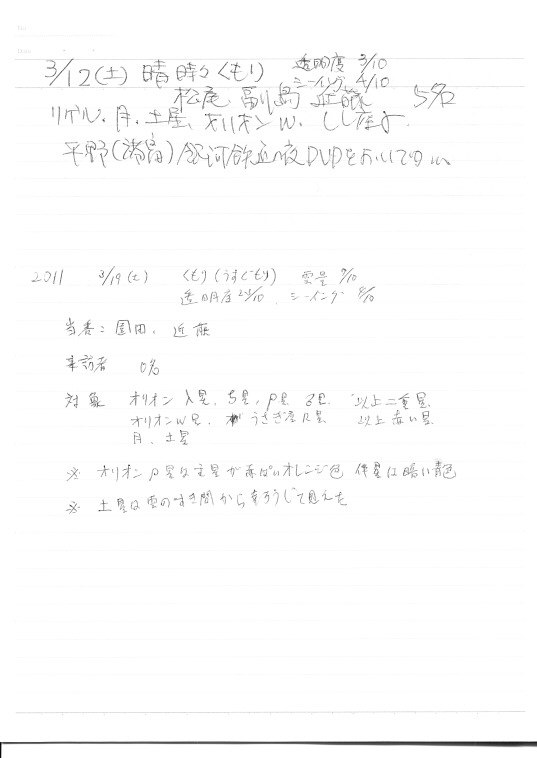 3/12(土) 晴時々くもり 透明度 3/10
シーイング 4/10
松尾 副島 近藤 5名
リゲル、月、土星、オリオンW、しし座γ
平野(諸富)銀河鉄道の夜DVDをおいて
2011 3/19(土) くもり(うすぐもり) 雲量 9/10
透明度 2/10、シーイング 8/10
当番:園田、近藤
来訪者 0名
対象 オリオン λ星、ζ星、ρ星、以上二重星
オリオンW星、うさぎ座R星 以上赤い星
月、土星
※ オリオンρ星は主星が赤ぽいオレンジ色 伴星は暗い青色
※ 土星は雲のすき間から辛ろうじて見えた